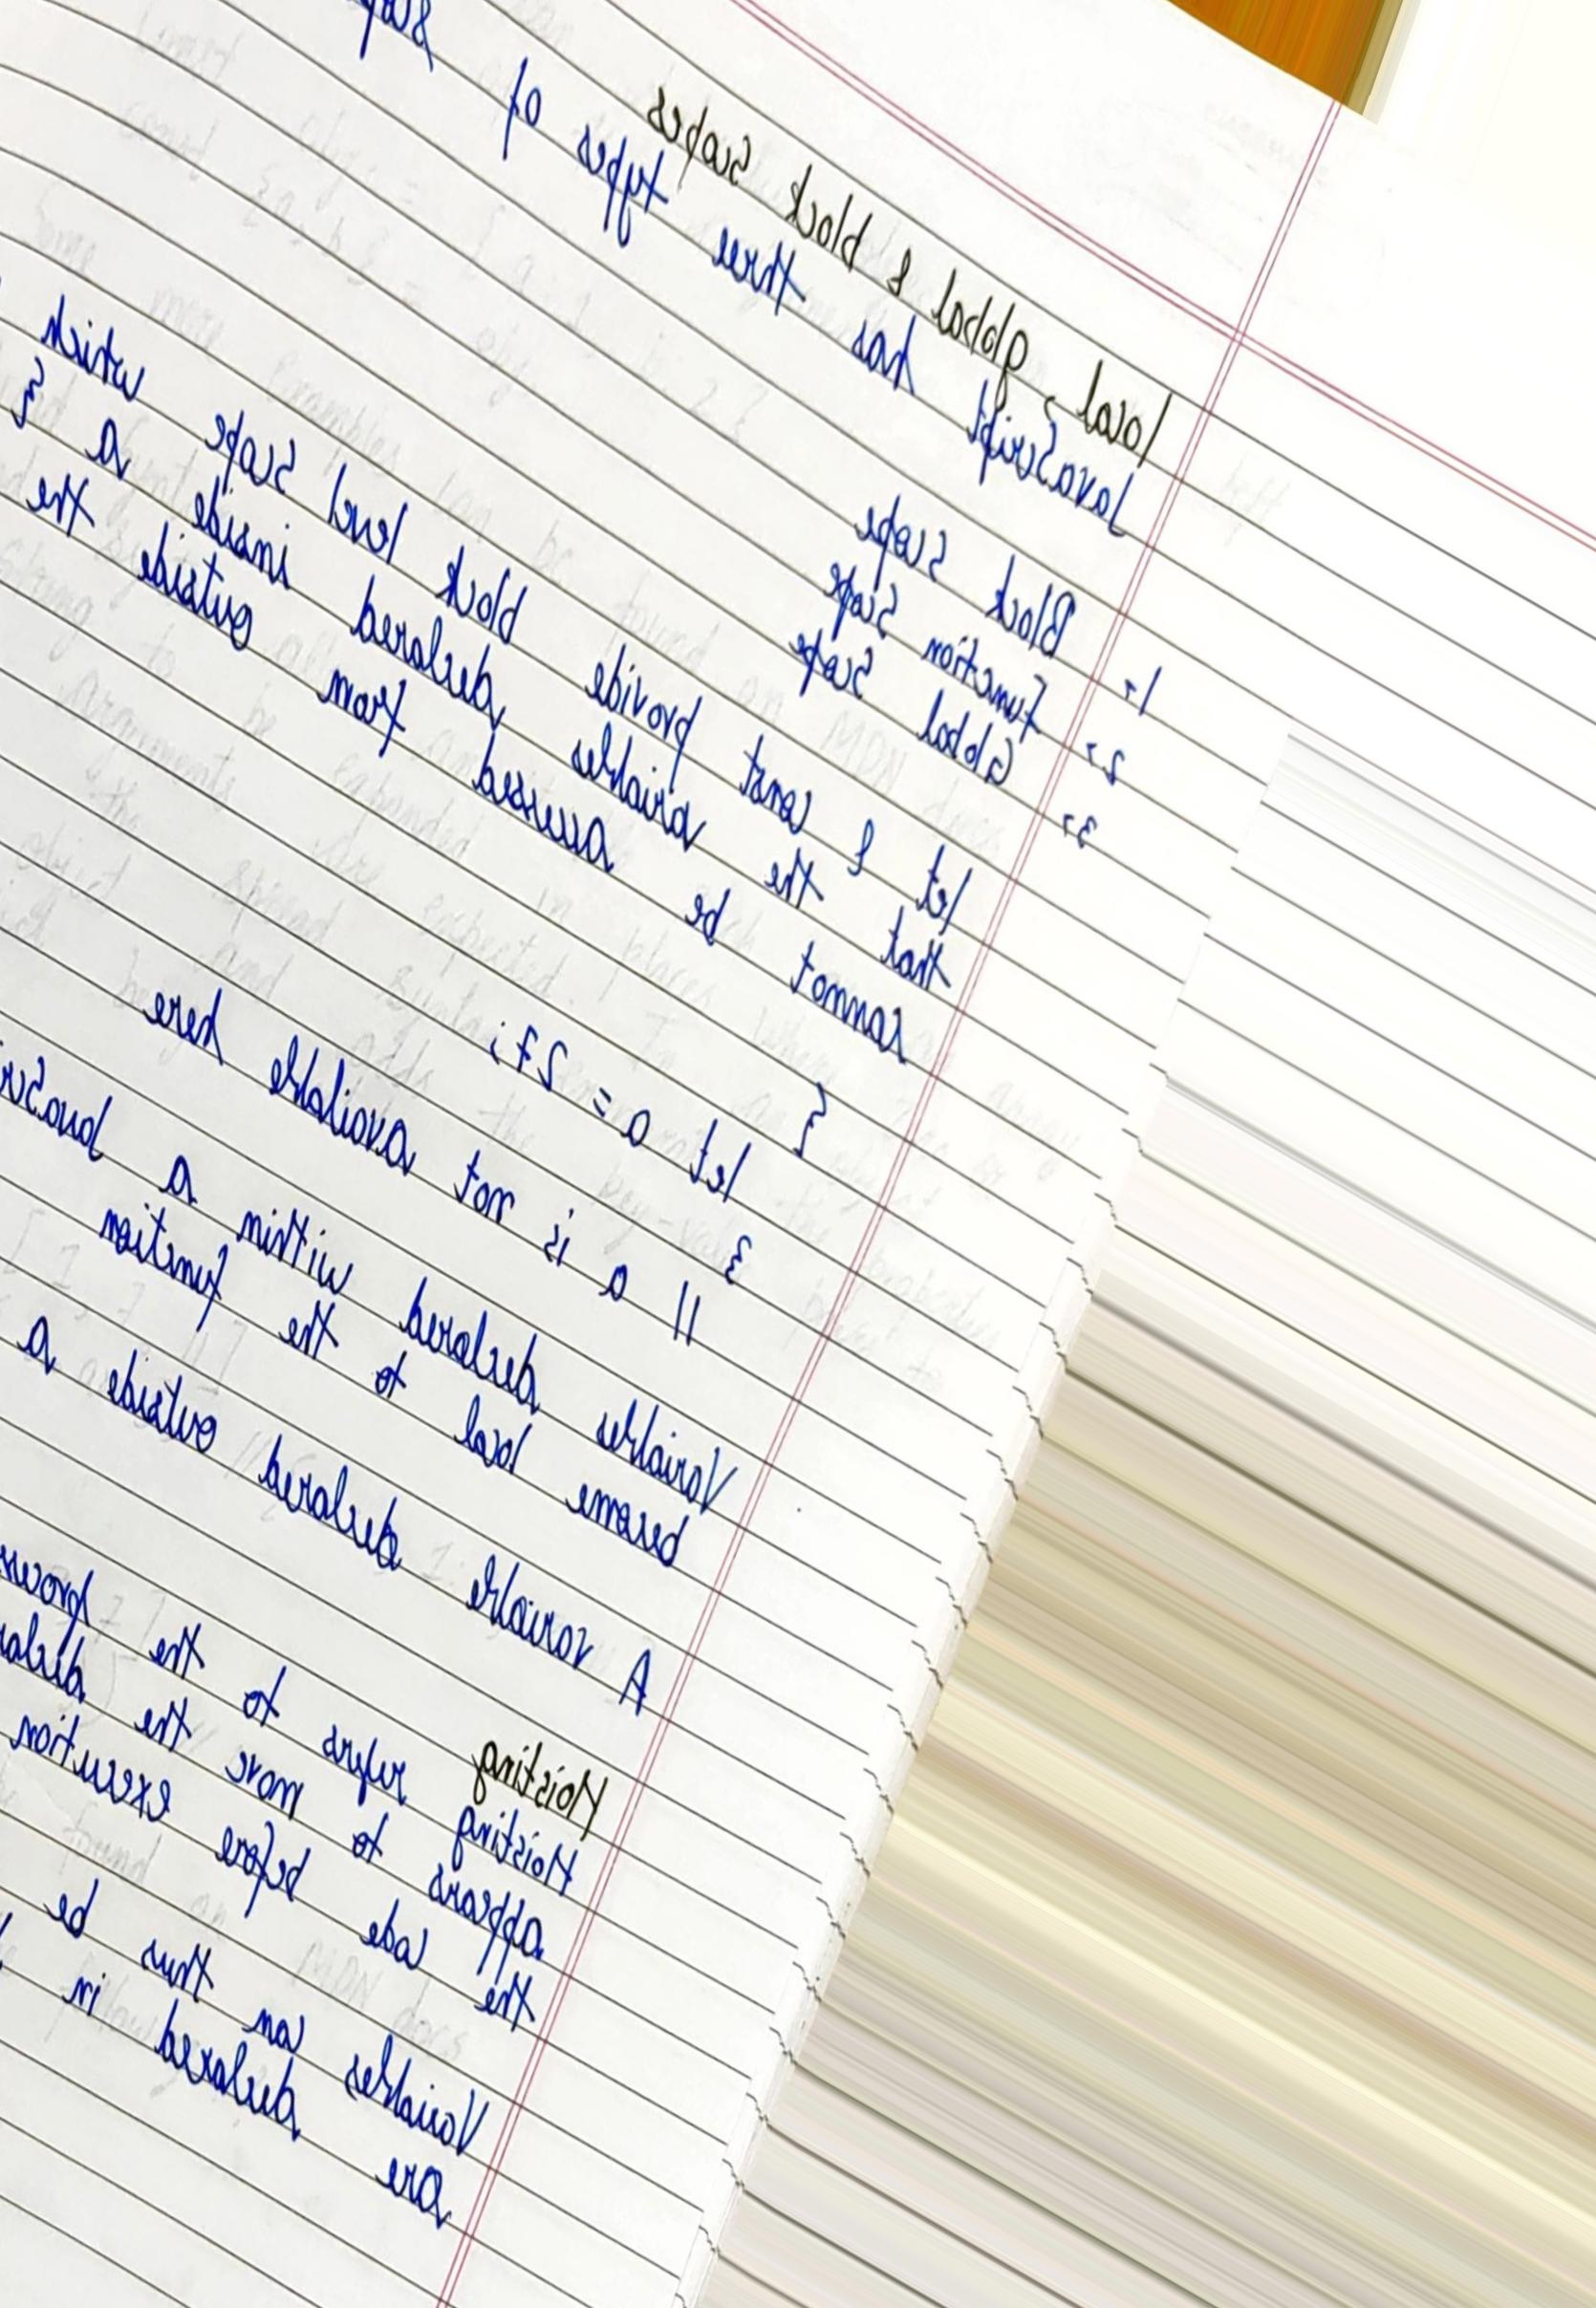 local, global & block scopes
JavaScript has three types of
1> Block scope
2> function scope
3> Global scope
let & const provide block level scope which
that the variables declared inside a {
cannot be accessed from outside the
{
let a = 27;
}
// a is not available here
Variables declared within a
become local to the function
A variable declared outside a
Hoisting
Hoisting refers to the
appears to move the
the code before execution
Variables can thus be
are declared in